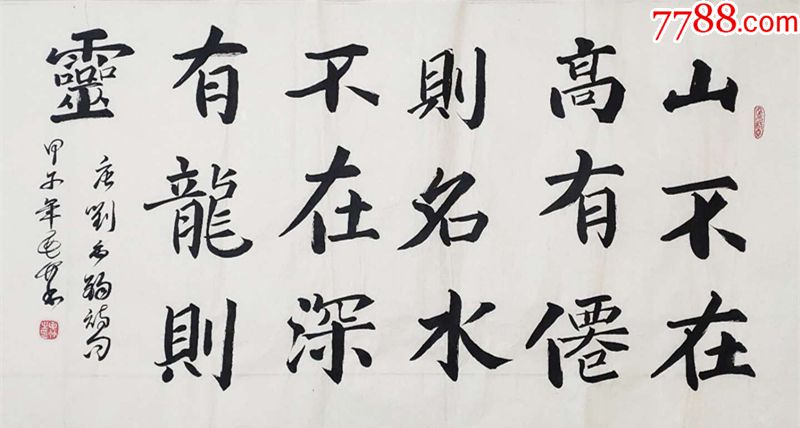 7788.com
山不在
高有僊
則名水
不在深
有龍則
靈
唐劉禹錫詩句
甲午年